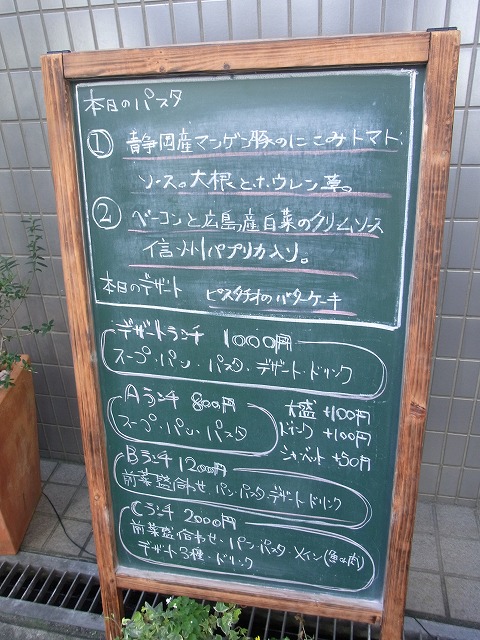 本日のパスタ
① 静岡産マンゲン豚のにこみトマト
ソース。大根とホウレン草。
② ベーコンと広島産白菜のクリームソース
信州パプリカ入り。
本日のデザート ピスタチオのバターケーキ
デザートランチ 1000円
スープ・パン・パスタ・デザート・ドリンク
Aランチ 800円
スープ・パン・パスタ
大盛 +100円
ドリンク +100円
シャーベット +50円
Bランチ 1200円
前菜盛合わせ・パン・パスタ・デザート・ドリンク
Cランチ 2000円
前菜盛合わせ・パン・パスタ・メイン(魚or肉)
デザート3種・ドリンク